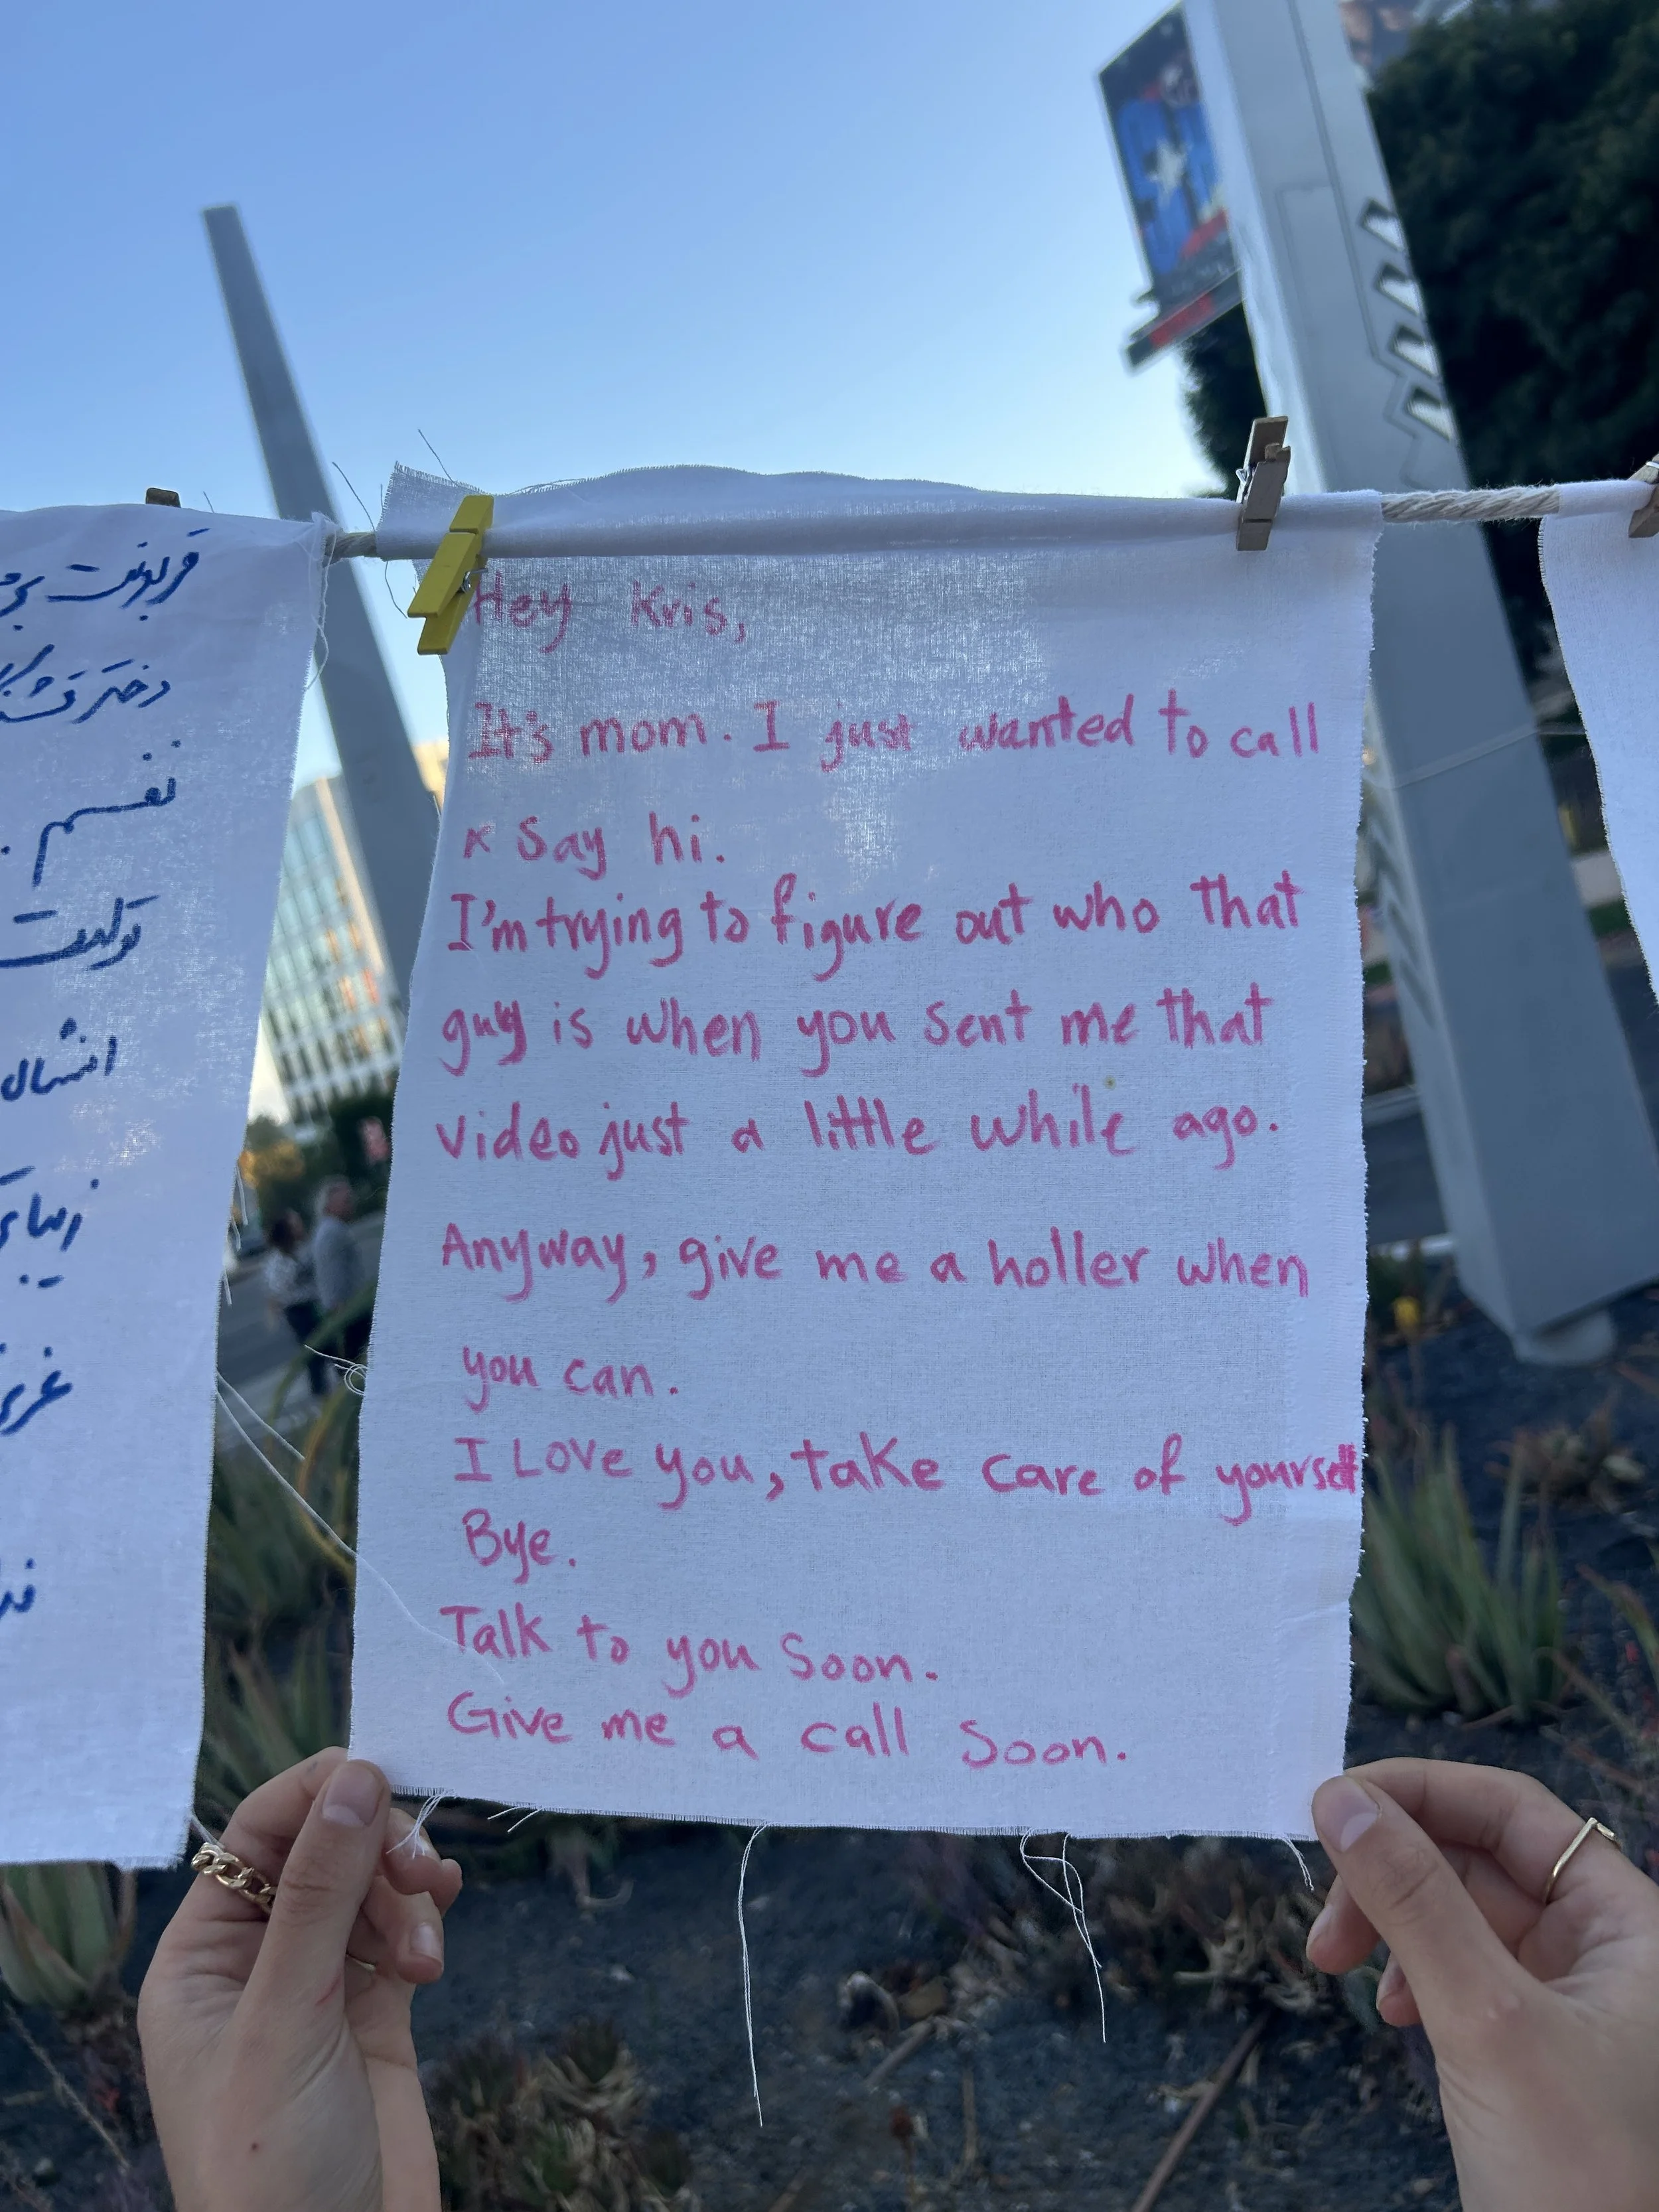 قربونت برم
دختر قشنگ
نفسم
تولدت
انشال
زیبای
Hey Kris,
It's mom. I just wanted to call
& say hi.
I'm trying to figure out who that
guy is when you sent me that
video just a little while ago.
Anyway, give me a holler when
you can.
I Love you, take care of yourself
Bye.
Talk to you Soon.
Give me a call Soon.